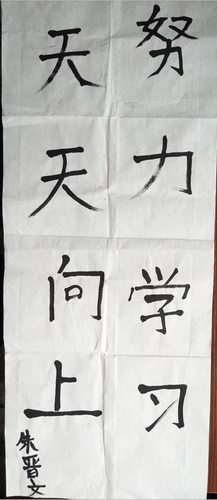 努力学习
天天向上
朱晋文